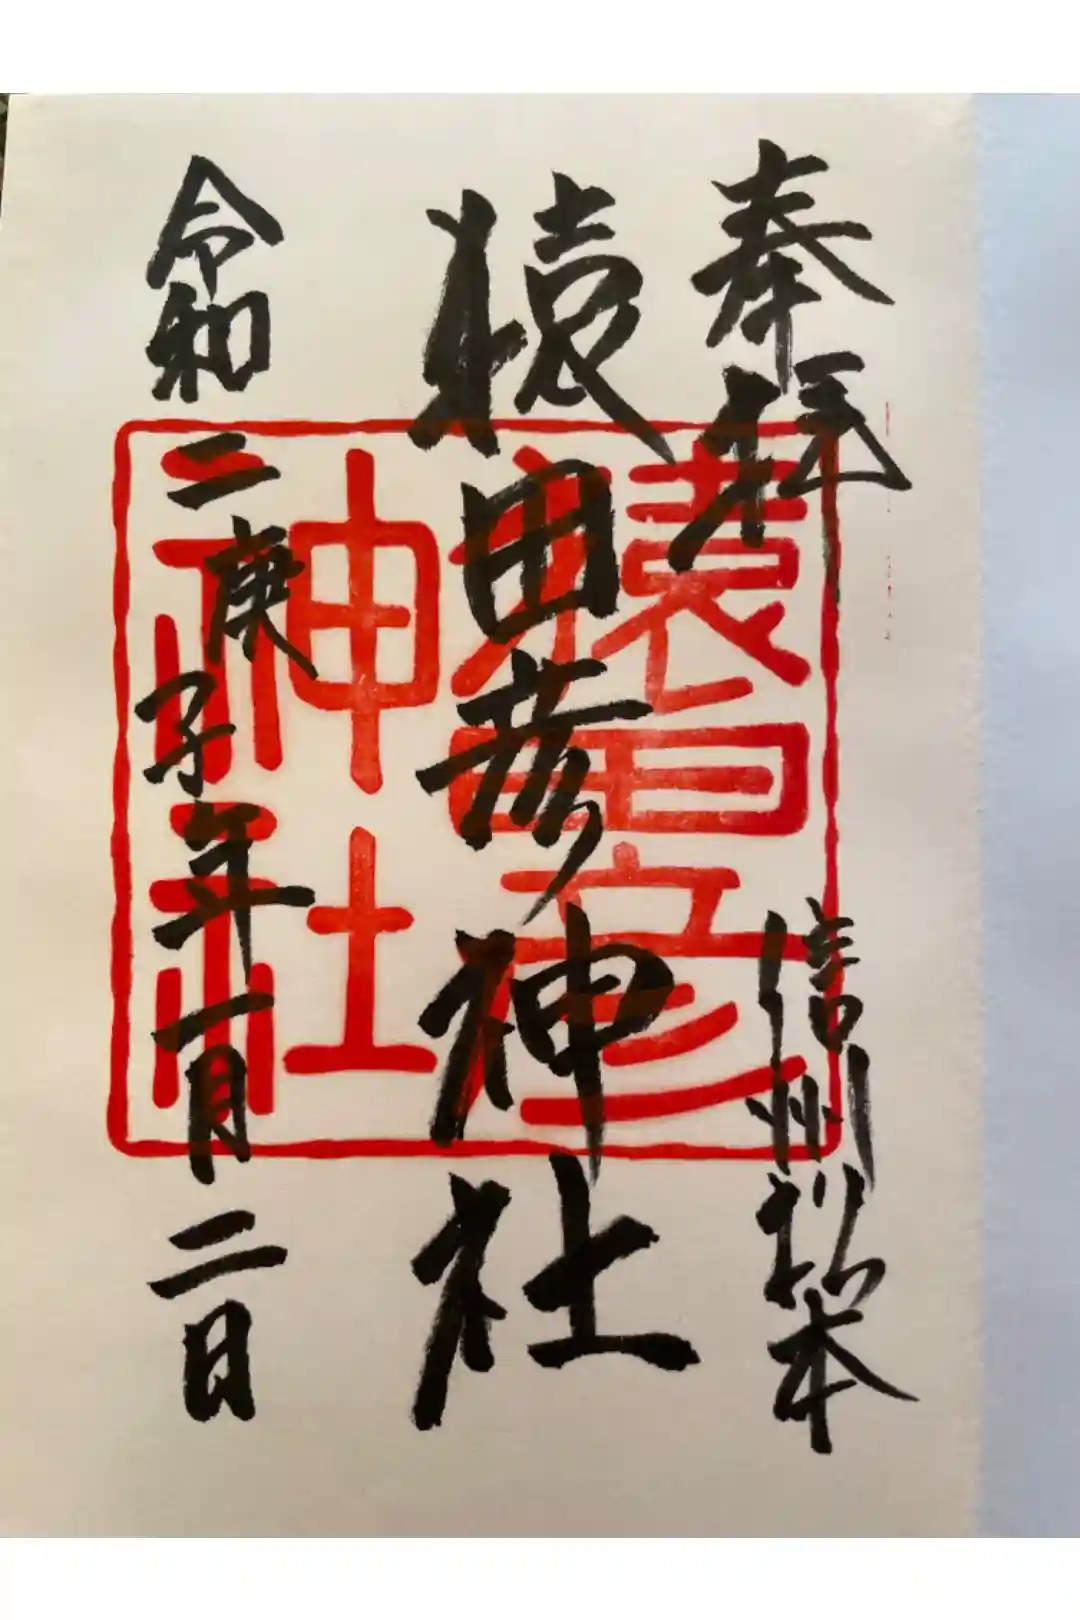 奉拝
信州松本
猿田彦神社
令和二庚子年一月二日
猿田彦
神社